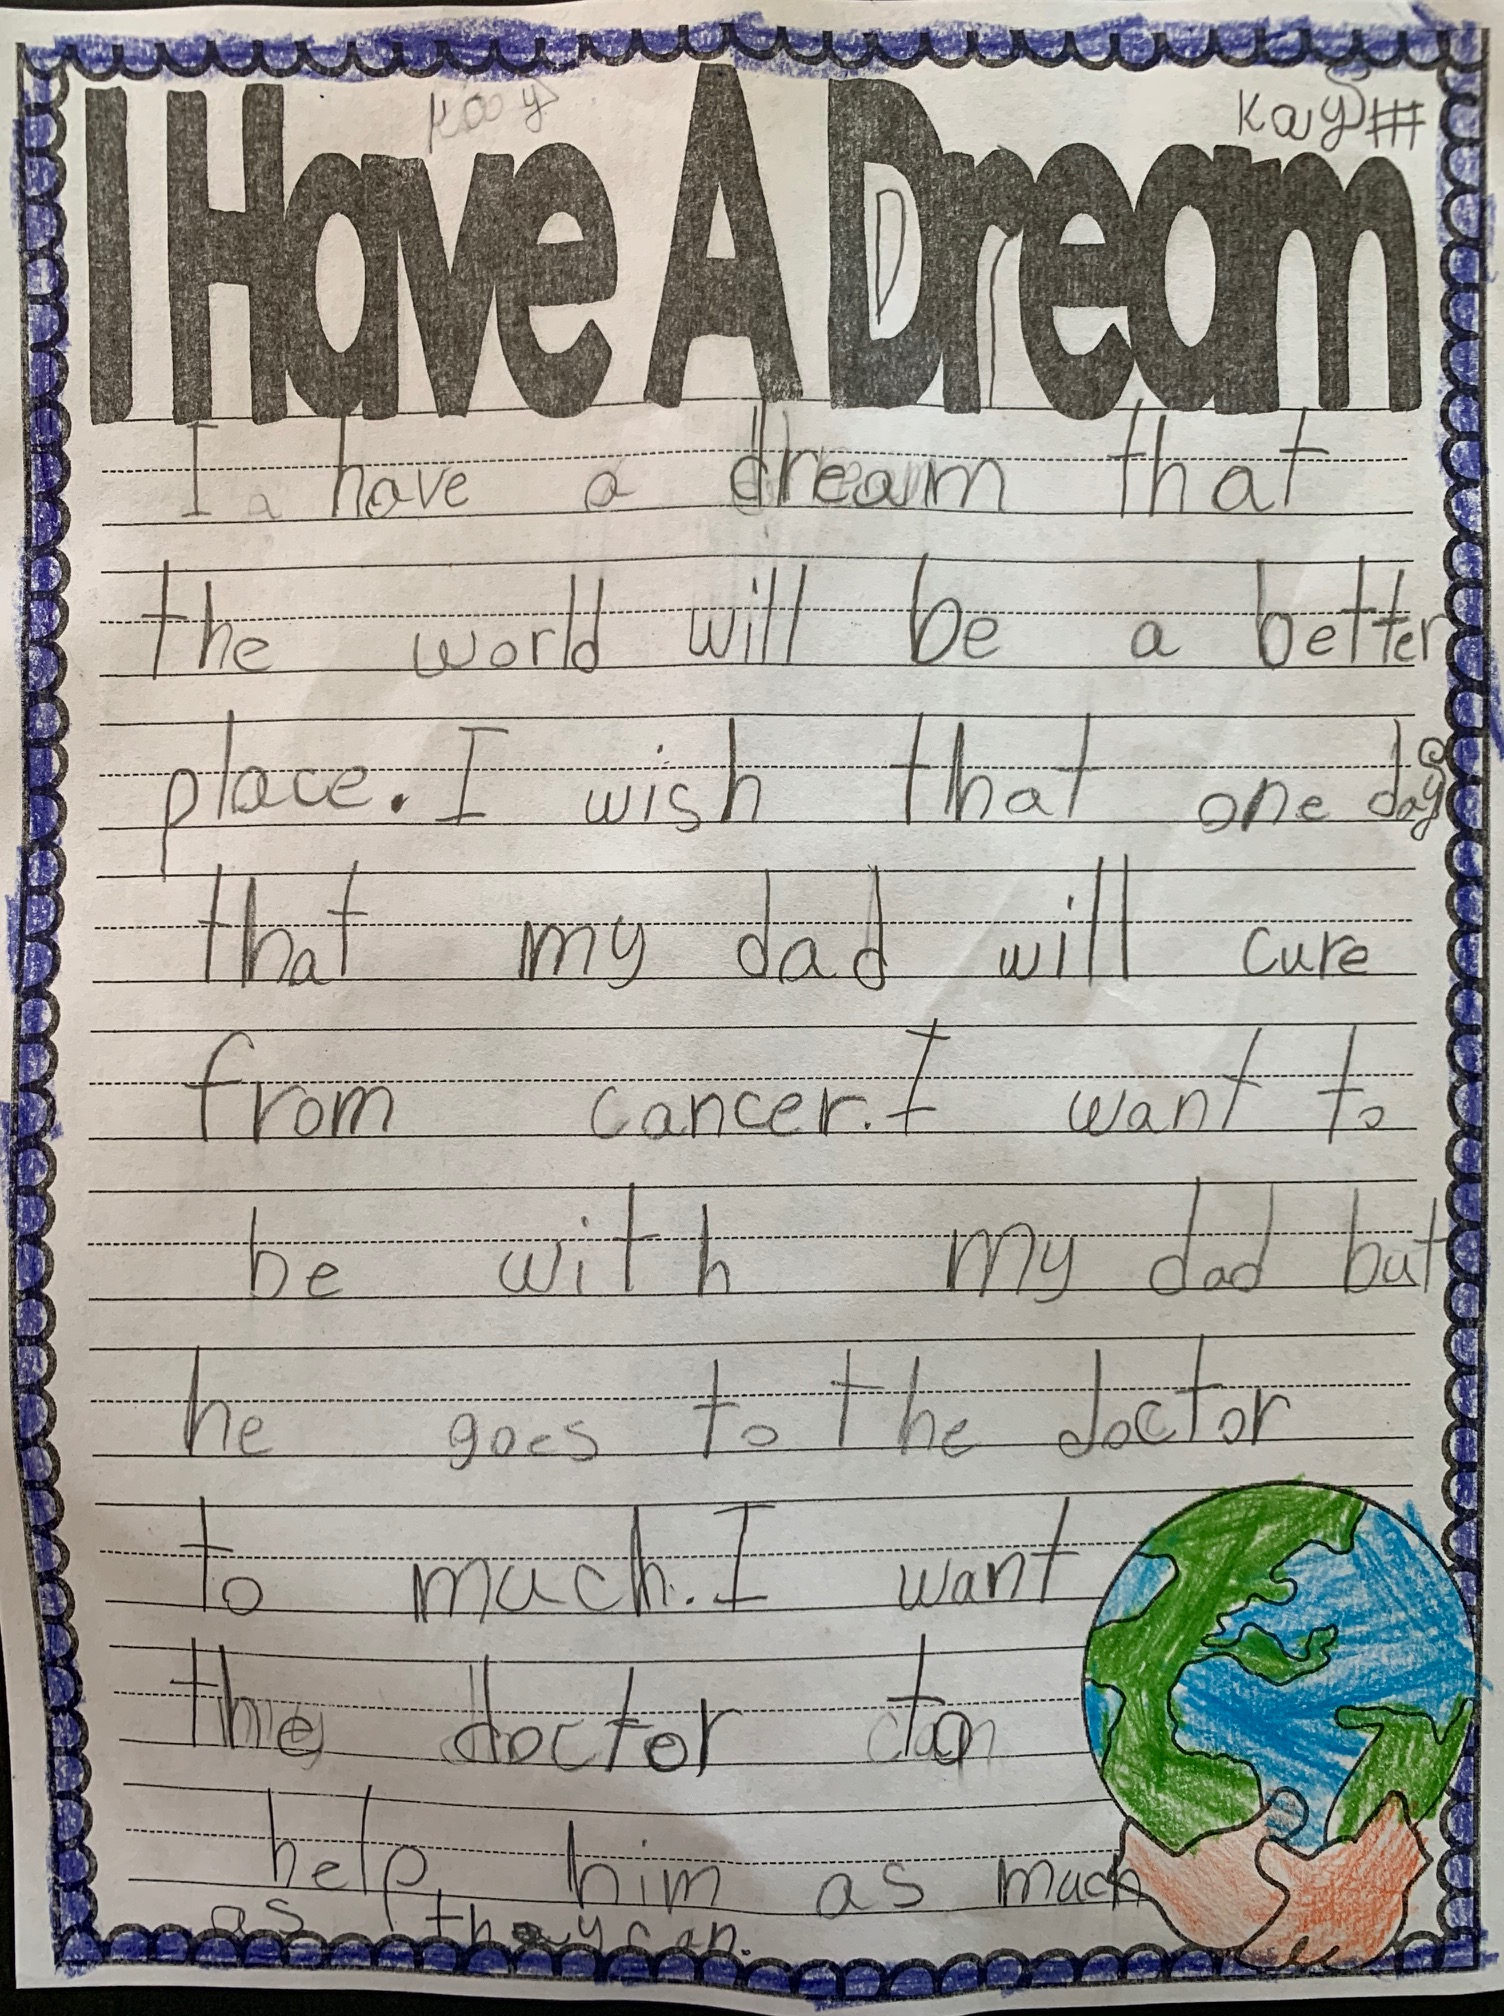 Kay Kay##
I Have A Dream
I have a dream that
the world will be a better
place. I wish that one day
that my dad will cure
from cancer. I want to
be with my dad but
he goes to the doctor
to much. I want
the doctor to
help him as much
as they can.